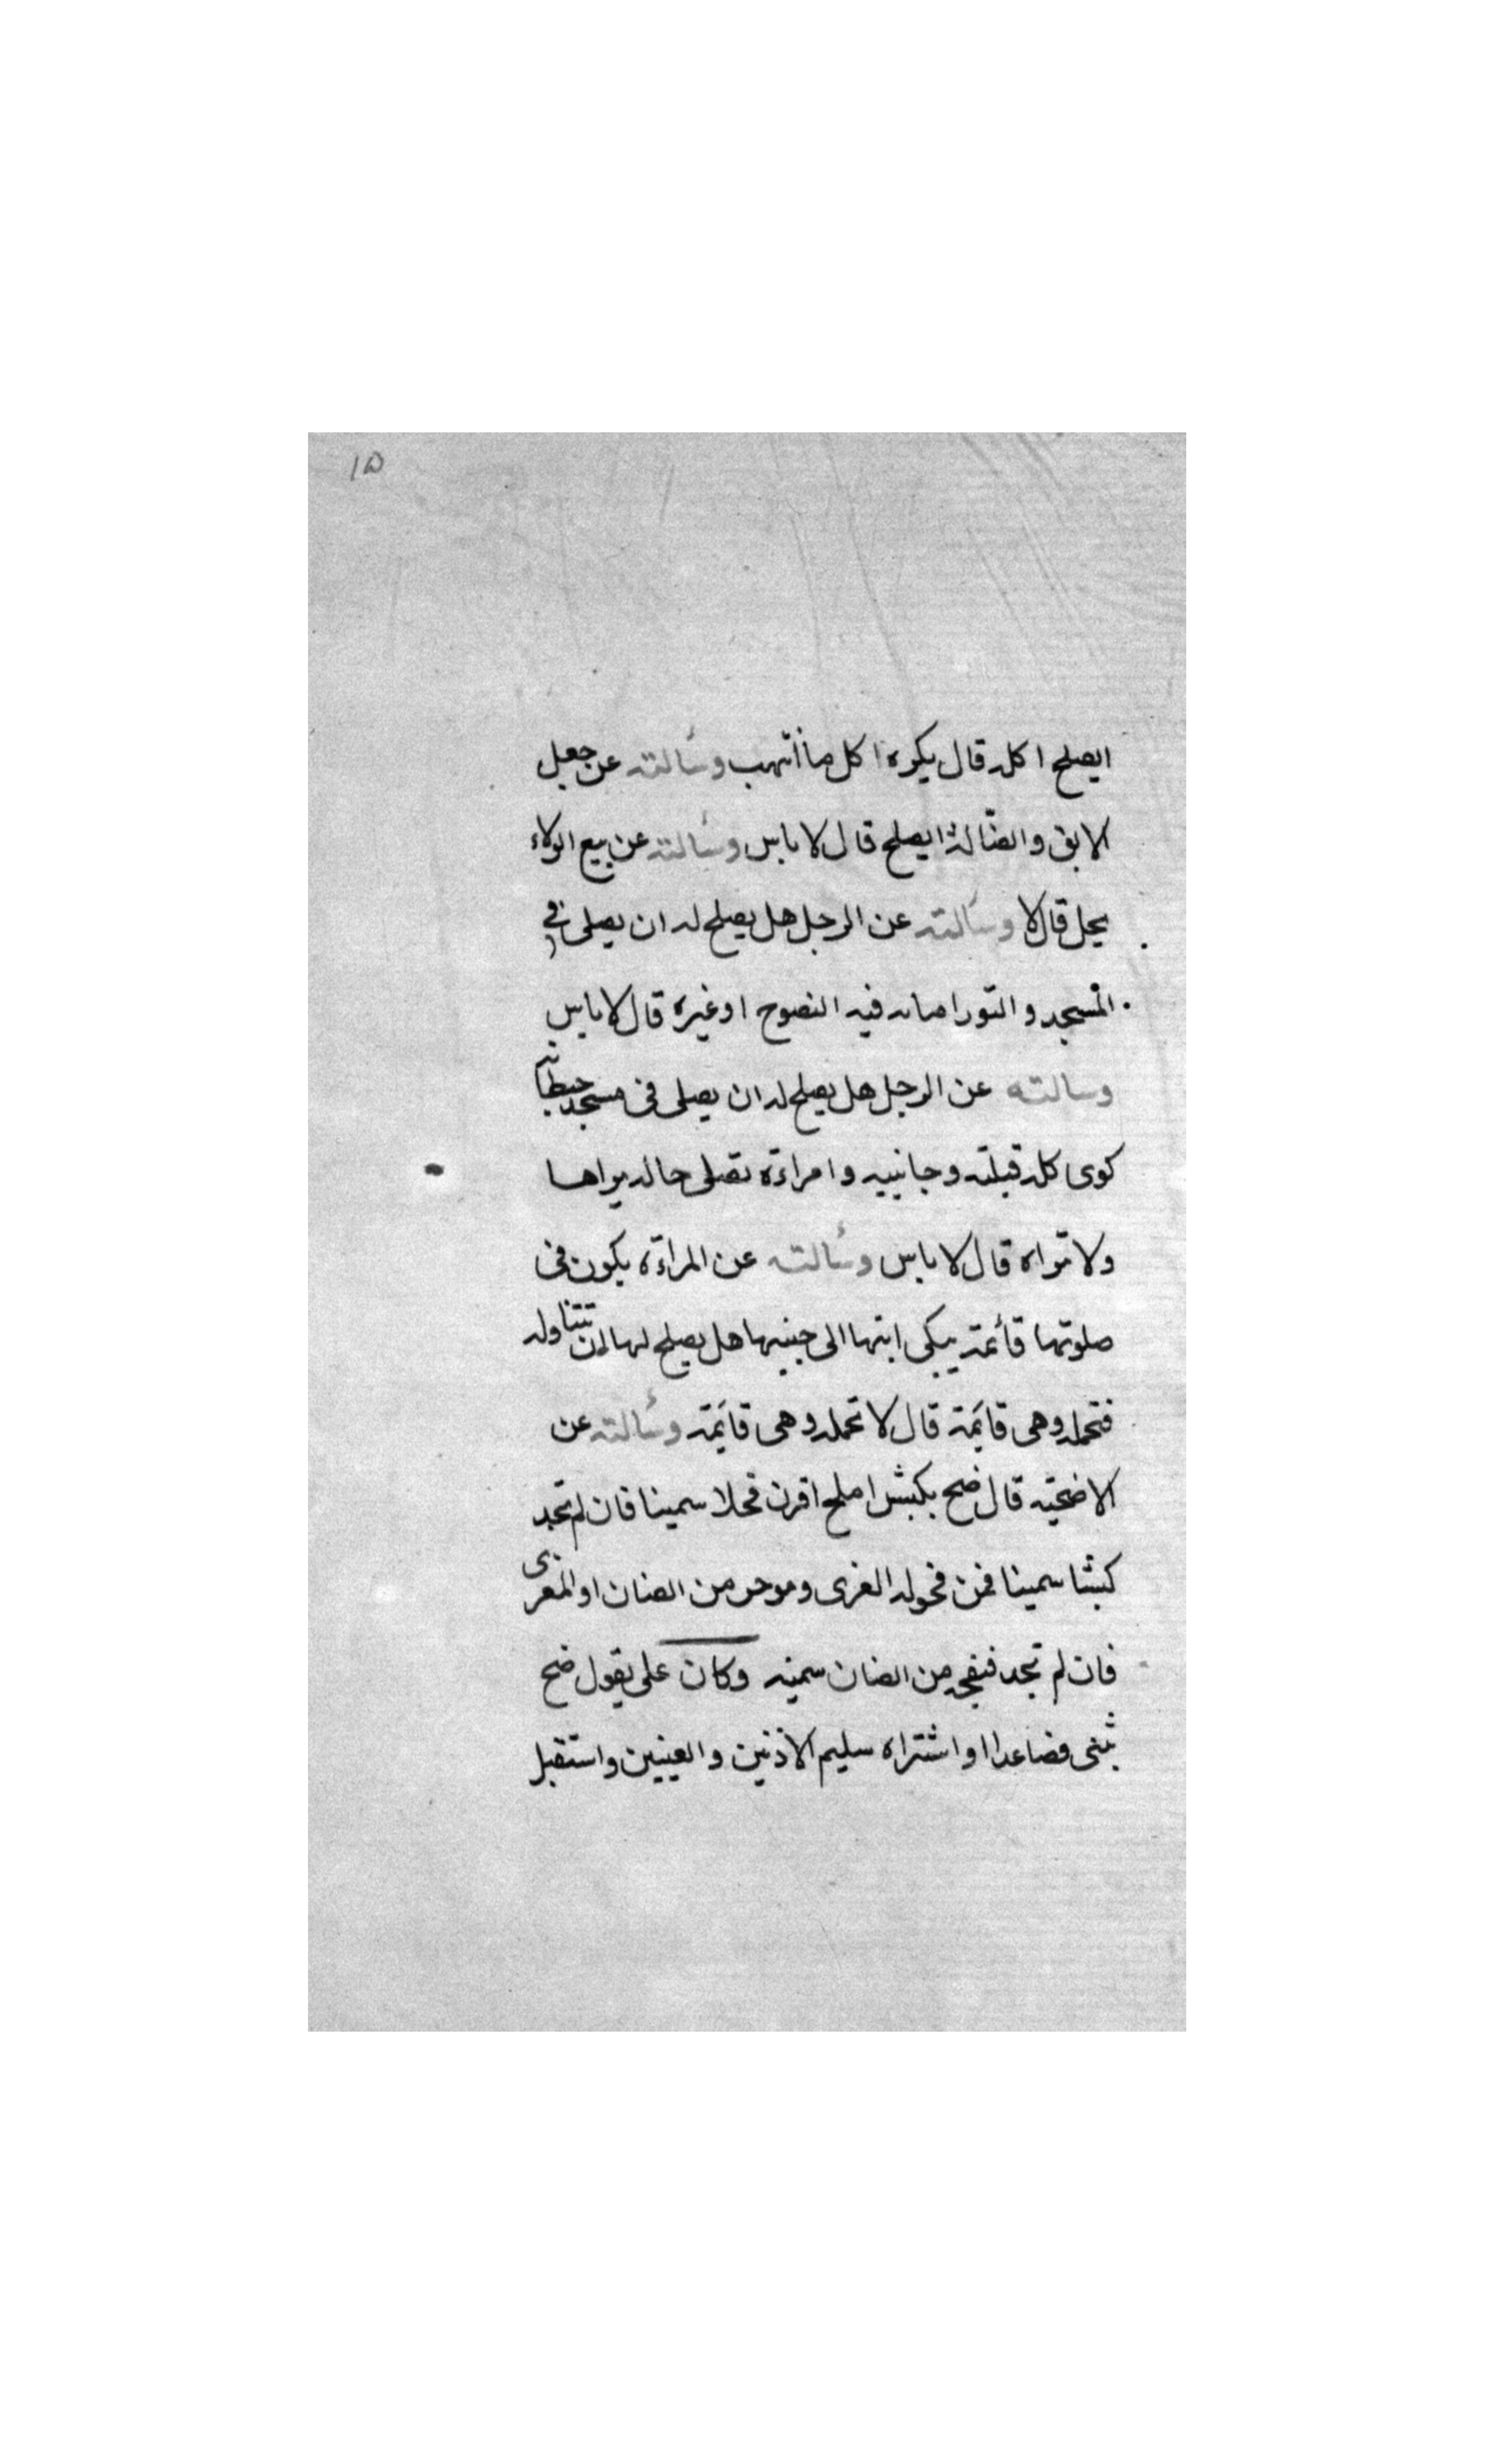 ١٥
ايصلح اكله قال يكره اكل ما انهب وسألته عن جعل
الابق والضّالة ايصلح قال لا باس وسألته عن بيع الولاء
يحل قال لا وسألته عن الرجل هل يصلح له ان يصلى فى
المسجد والتور امامه فيه النضوح او غيره قال لا باس
وسالته عن الرجل هل يصلح له ان يصلى فى مسجد حيطانه
كوى كله قبلته وجانبيه وامراءة تصلى حاله يراها
ولا تراه قال لا باس وسألته عن المراءة يكون فى
صلوتها قائمة يبكى ابنها الى جنبها هل يصلح لها ان تتناوله
فتحمله وهى قايمة قال لا تحمله وهى قايمة وسألته عن
الاضحيّه قال ضح بكبش املح اقرن فحلا سمينا فان لم تجد
كبشا سمينا فمن فحوله المعزى من الضان او المعزى
فان لم تجد فنعجه من الضان سمينه وكان على يقول ضح
بثنى فصاعدا واشتراه سليم الاذنين والعينين واستقبل